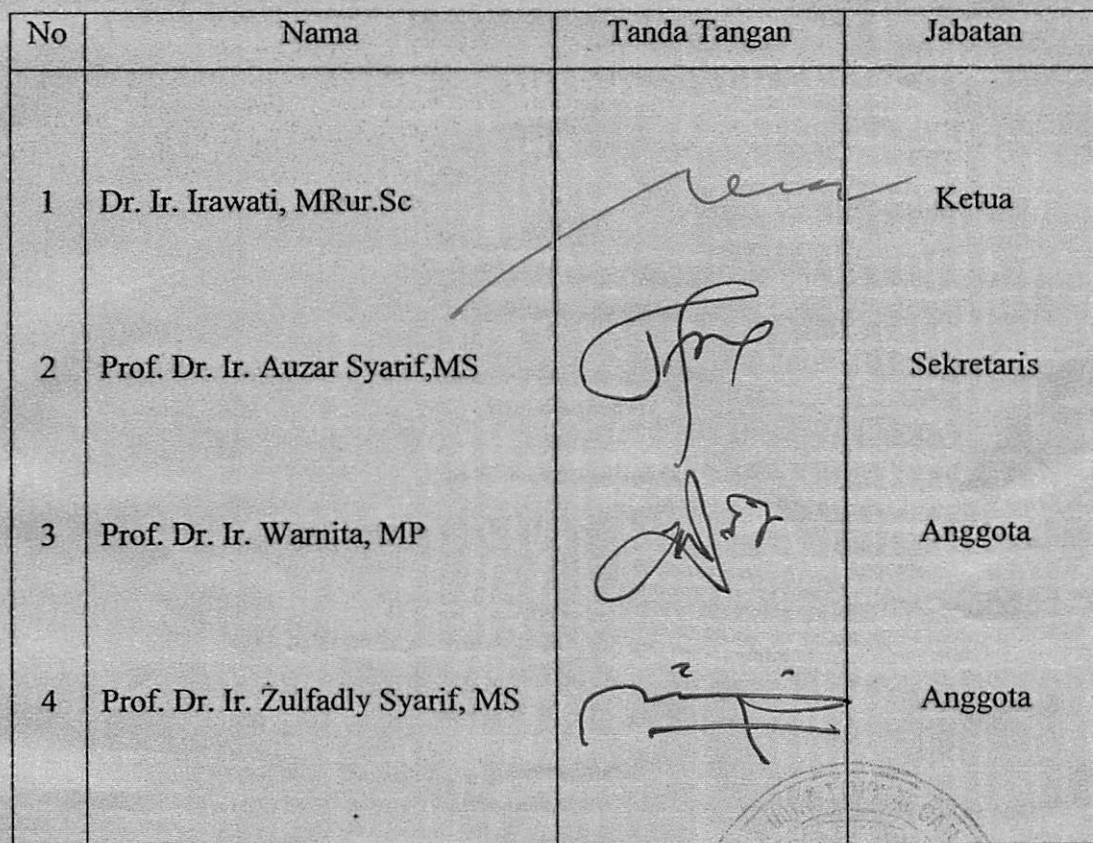 No Nama Tanda Tangan Jabatan
1 Dr. Ir. Irawati, MRur.Sc Ketua
2 Prof. Dr. Ir. Auzar Syarif,MS Sekretaris
3 Prof. Dr. Ir. Warnita, MP Anggota
4 Prof. Dr. Ir. Zulfadly Syarif, MS Anggota